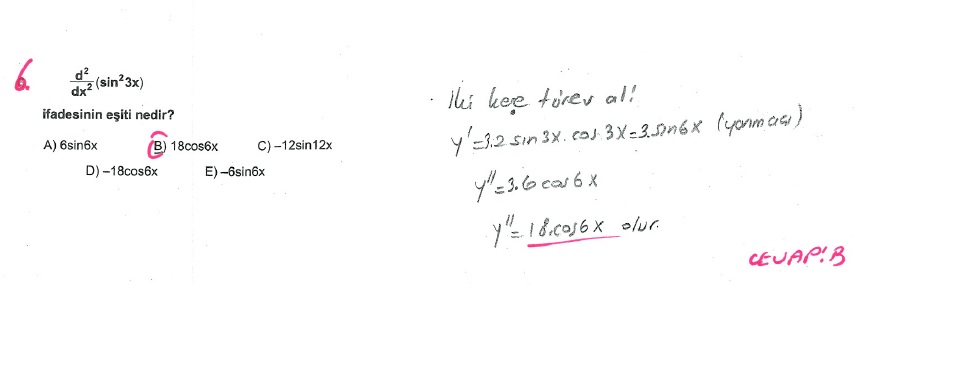 6.
d²/dx² (sin²3x)
ifadesinin eşiti nedir?
A) 6sin6x B) 18cos6x C) –12sin12x
D) –18cos6x E) –6sin6x
İki keçe türev al!
y'=3.2 sin 3x. cos 3x=3.sin6x (yarım açısı)
y''=3.6 cos 6x
y''=18.cos6x olur.
CEVAP: B